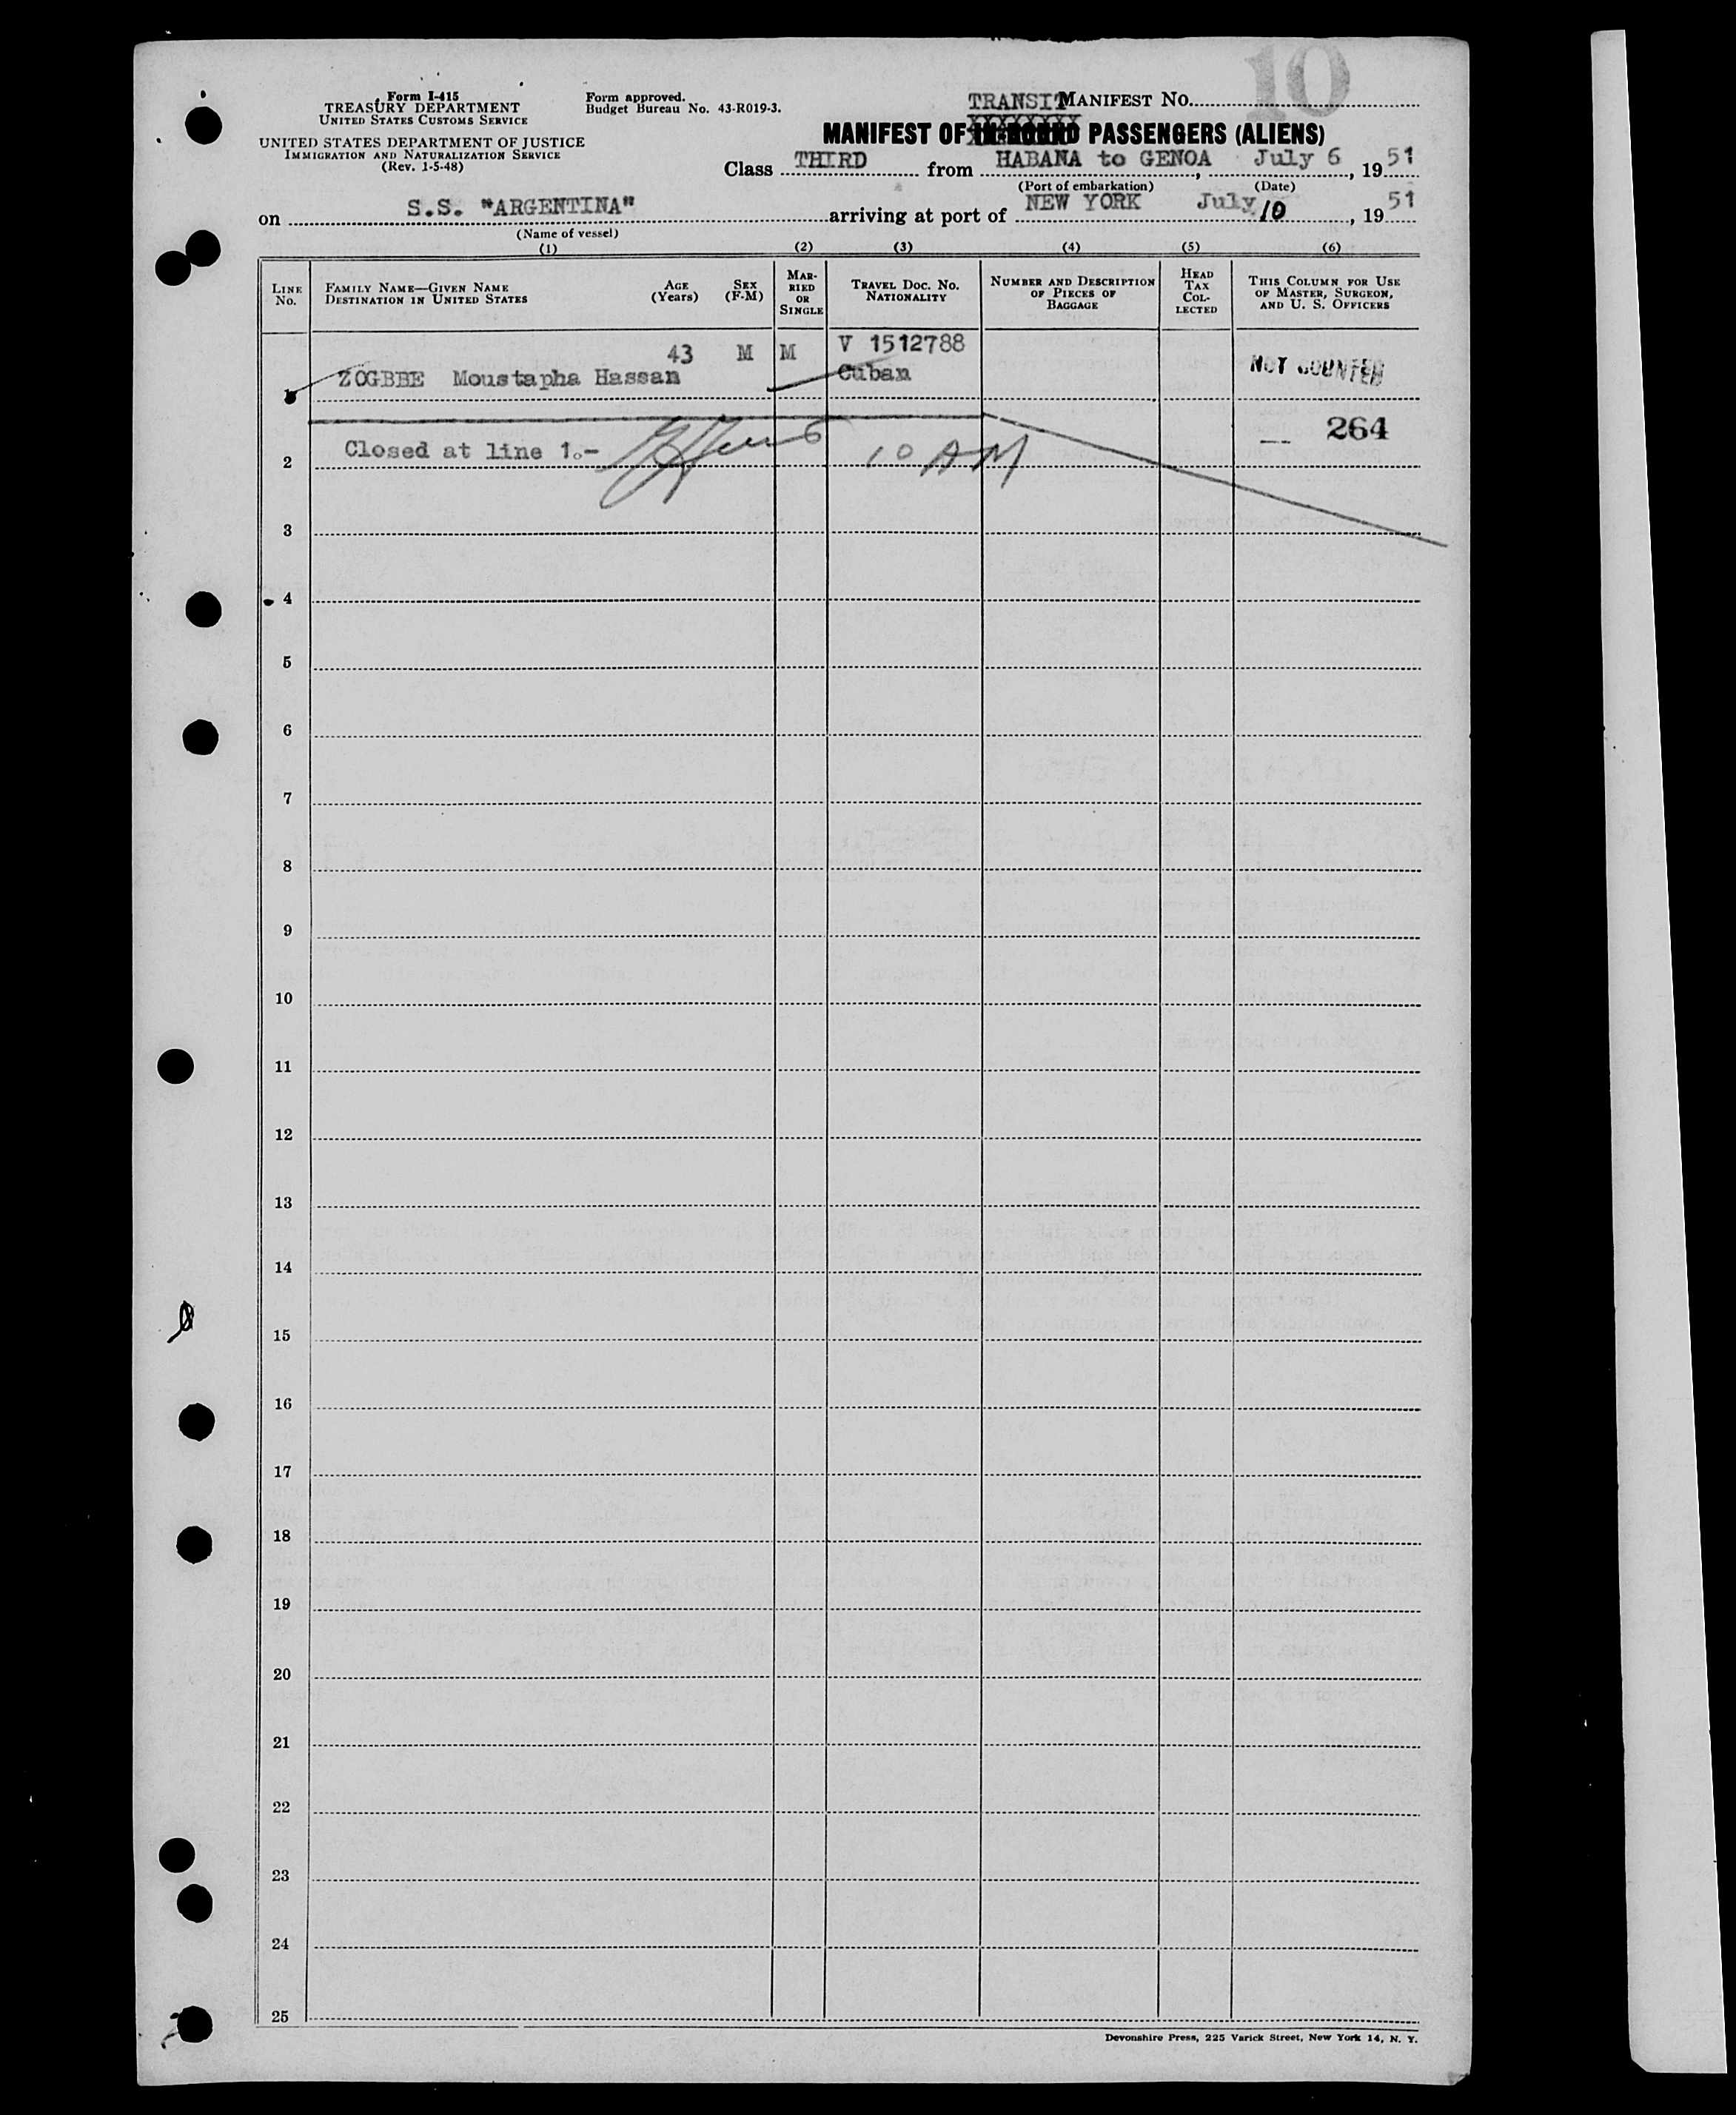 10
Form I-415
TREASURY DEPARTMENT
UNITED STATES CUSTOMS SERVICE
UNITED STATES DEPARTMENT OF JUSTICE
IMMIGRATION AND NATURALIZATION SERVICE
(Rev. 1-5-48)
Form approved.
Budget Bureau No. 43-R019-3.
TRANSIT MANIFEST No.
XXXXXXXX
MANIFEST OF IN-BOUND PASSENGERS (ALIENS)
Class THIRD from HABANA to GENOA, July 6, 1951
(Port of embarkation) (Date)
on S.S. "ARGENTINA" arriving at port of NEW YORK July 10, 1951
(Name of vessel)
(1) (2) (3) (4) (5) (6)
LINE No.
FAMILY NAME—GIVEN NAME
DESTINATION IN UNITED STATES
AGE (Years)
SEX (F-M)
MARRIED OR SINGLE
TRAVEL DOC. NO. NATIONALITY
NUMBER AND DESCRIPTION OF PIECES OF BAGGAGE
HEAD TAX COLLECTED
THIS COLUMN FOR USE OF MASTER, SURGEON, AND U. S. OFFICERS
43 M M V 1512788
1 ZOGBBE Moustapha Hassan Cuban NOT COUNTED
-- 264
2 Closed at line 1.- 10 AM
3
4
5
6
7
8
9
10
11
12
13
14
15
16
17
18
19
20
21
22
23
24
25
Devonshire Press, 225 Varick Street, New York 14, N. Y.